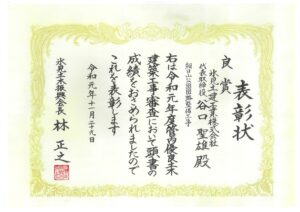 表彰状
良賞
氷見土建工業株式会社
代表取締役 谷口聖雄 殿
右は令和元年度管内優良土木
建築工事審査において頭書の
成績をおさめられましたので
これを表彰します
令和元年十一月二十九日
氷見土木振興会長
林正之